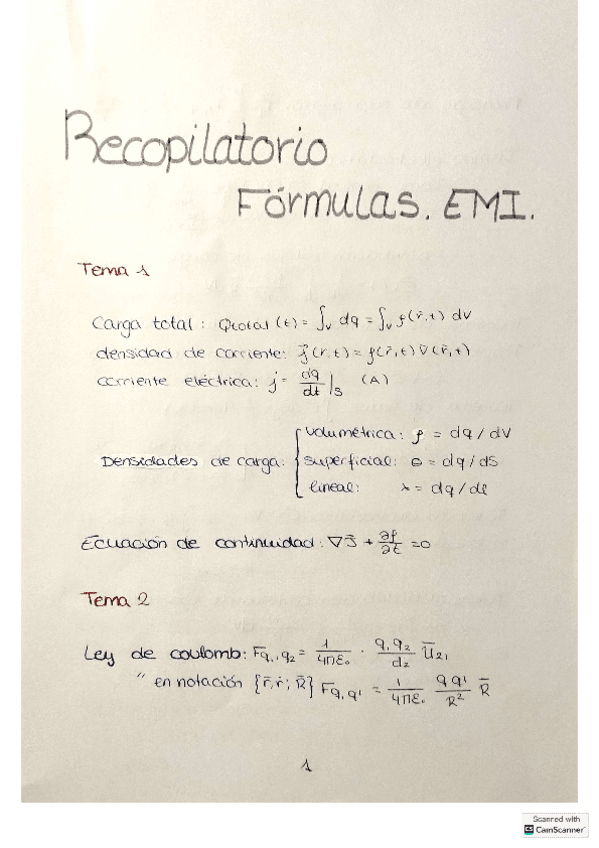 Recopilatorio
Fórmulas. EMI.
Tema 1
Carga total: Qtotal (t) = ∫v dq = ∫v ρ(r̄,t) dV
densidad de corriente: j̄(r,t) = ρ(r̄,t) v̄(r̄,t)
corriente eléctrica: j = dq/dt |s (A)
Densidades de carga: { volumétrica: ρ = dq/dV
superficial: σ = dq/ds
lineal: λ = dq/dl
Ecuación de continuidad: ∇J̄ + ∂ρ/∂t = 0
Tema 2
Ley de coulomb: F̄q₁,q₂ = 1/4πε₀ · q₁q₂/d² ū₂₁
" en notación {r̄,r̄'; R̄} F̄q,q' = 1/4πε₀ qq'/R² R̄
1
Scanned with
CS CamScanner